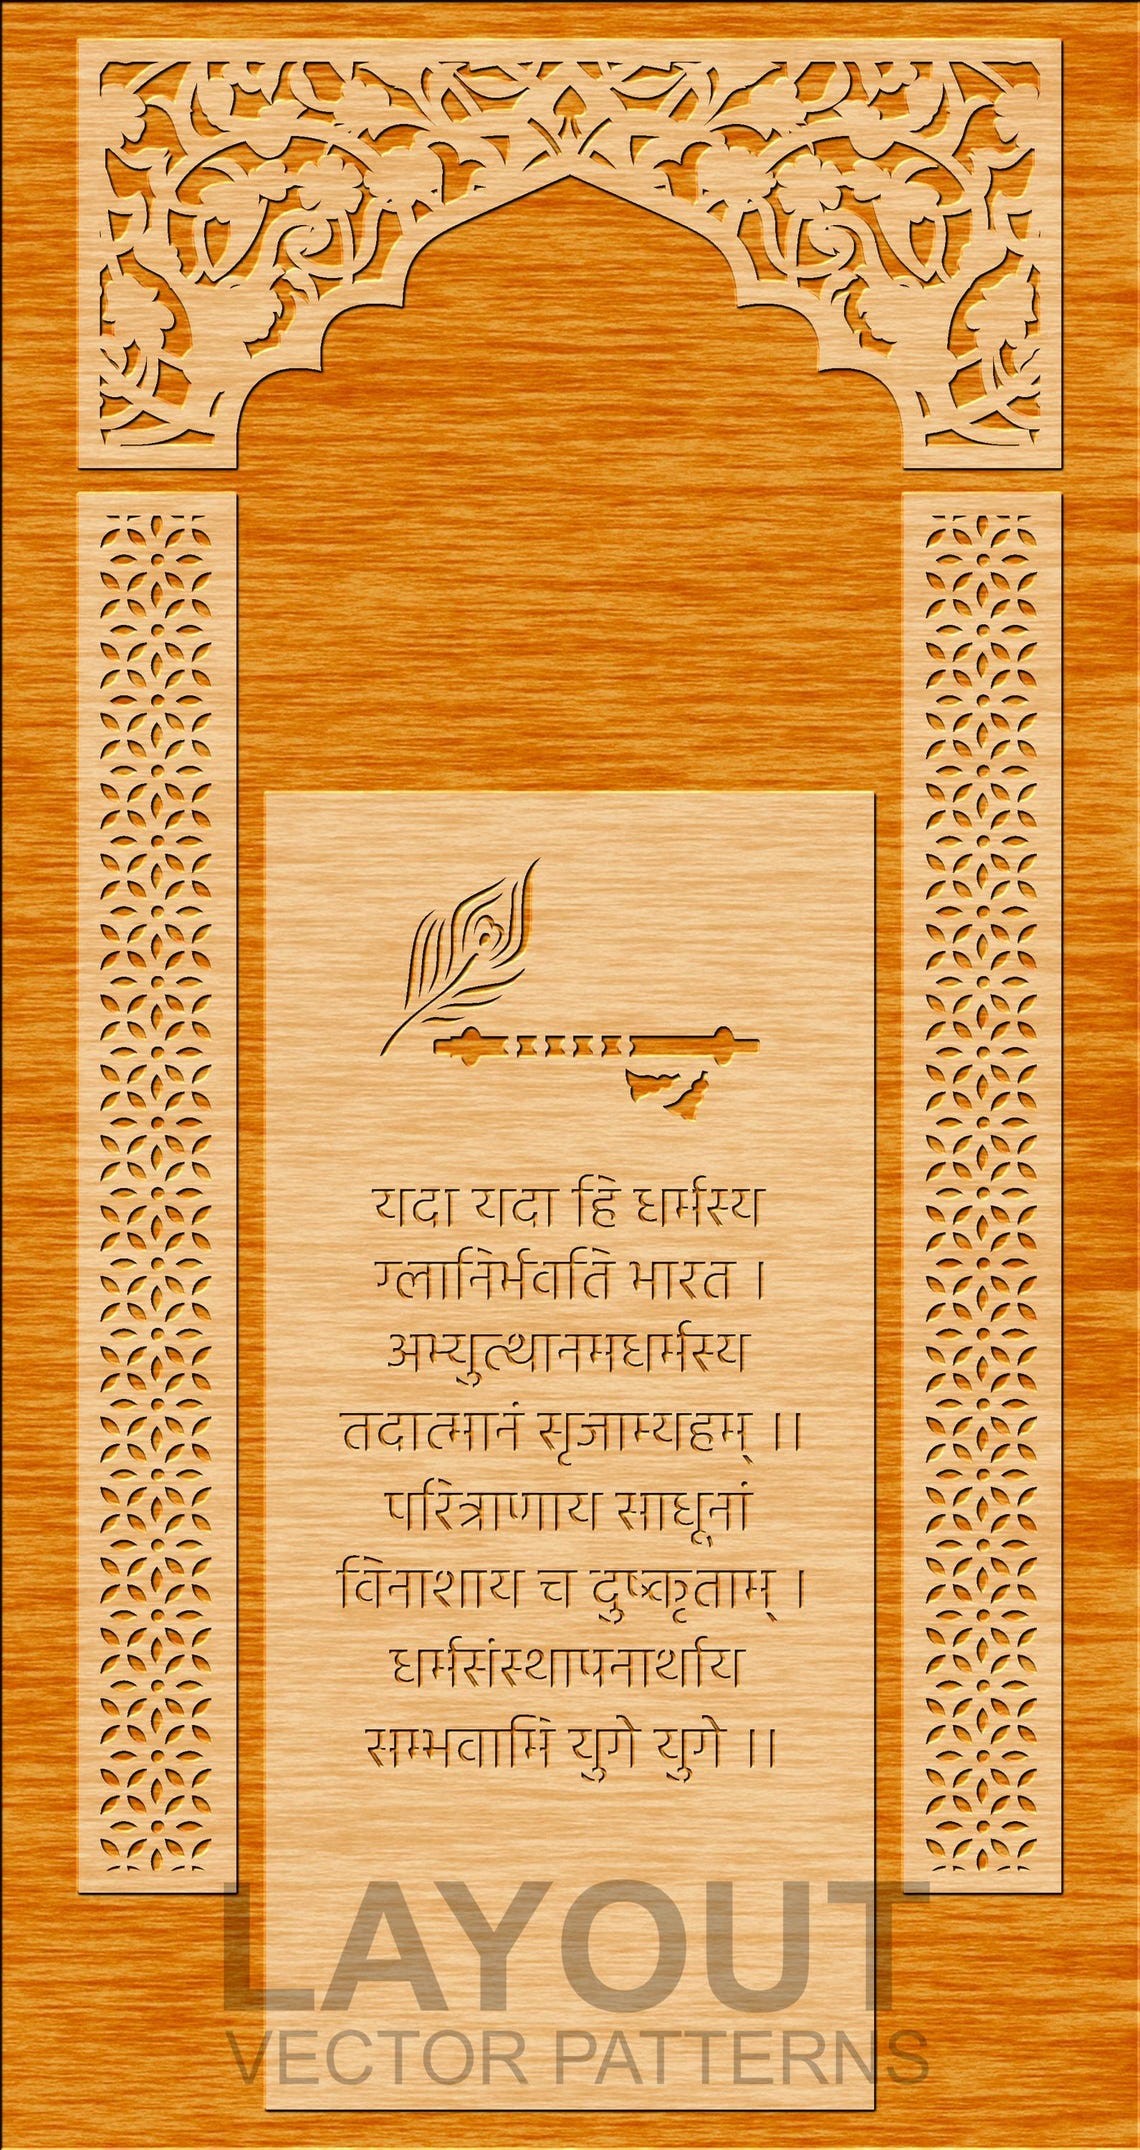 यदा यदा हि धर्मस्य
ग्लानिर्भवति भारत ।
अभ्युत्थानमधर्मस्य
तदात्मानं सृजाम्यहम् ।।
परित्राणाय साधूनां
विनाशाय च दुष्कृताम् ।
धर्मसंस्थापनार्थाय
सम्भवामि युगे युगे ।।
LAYOUT
VECTOR PATTERNS